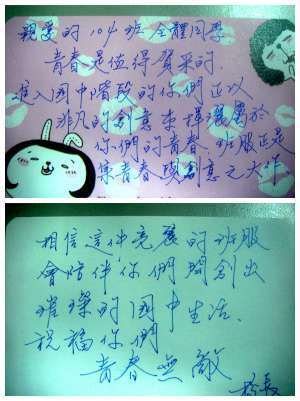 親愛的 104 班 全體同學
青春是值得喝采的.
進入國中階段的你們正以
非凡的創意來揮灑屬於
你們的青春. 班服正是
集青春與創意之大作.
相信這件亮麗的班服
會陪伴你們開創出
璀璨的國中生活.
祝福你們
青春無敵
校長